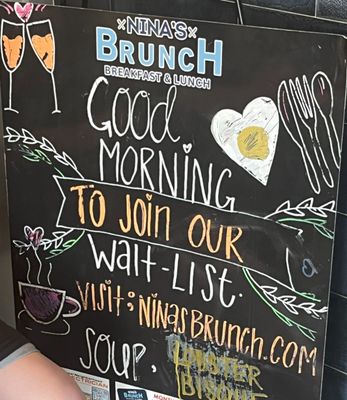 NINA'S
BRUNCH
BREAKFAST & LUNCH
Good
MORNING
To Join OUR
WAIT-LIST.
Visit; NINASBRUNCH.COM
SOUP,
LOBSTER
BISQUE
BRUNCH